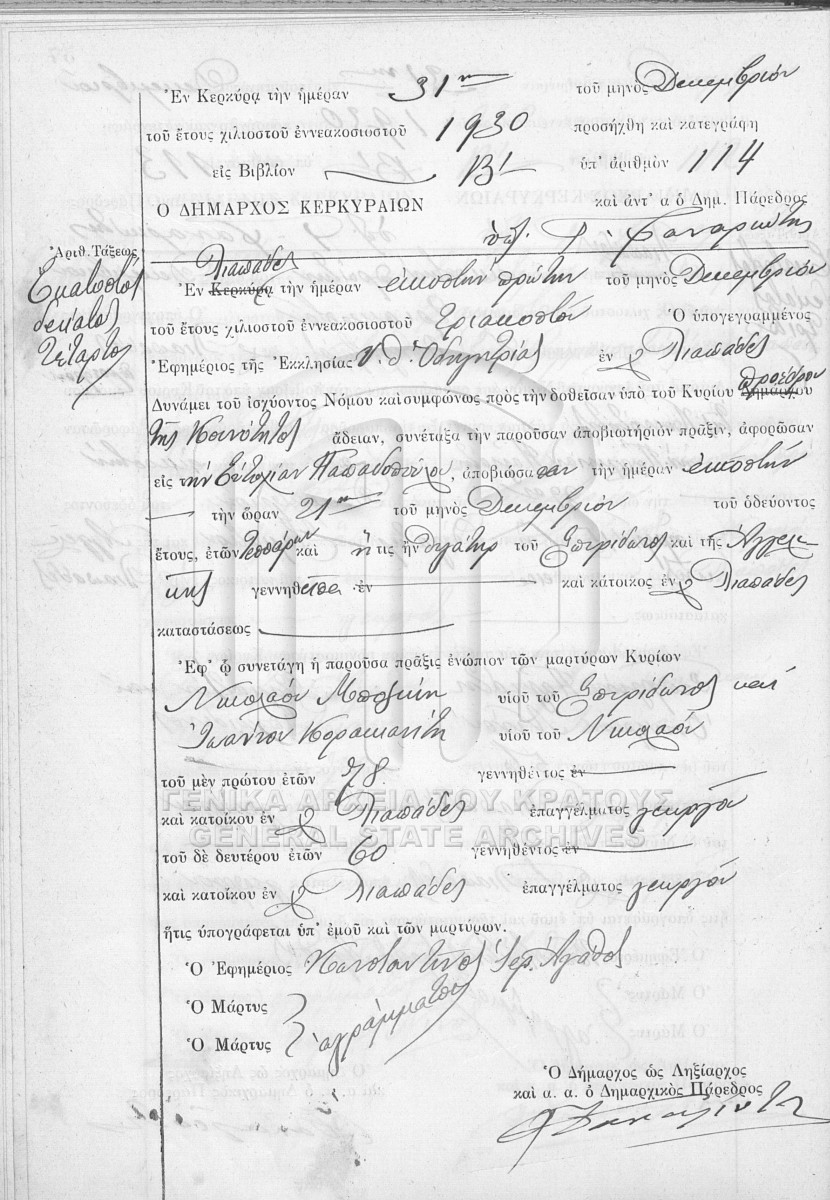 Ἐν Κερκύρᾳ τὴν ἡμέραν 31ην τοῦ μηνὸς Δεκεμβρίου
τοῦ ἔτους χιλιοστοῦ ἐννεακοσιοστοῦ 1930 προσήχθη καὶ κατεγράφη
εἰς Βιβλίον ΙΒ/ ὑπ' ἀριθμὸν 114
Ο ΔΗΜΑΡΧΟΣ ΚΕΡΚΥΡΑΙΩΝ καὶ ἀντ' α ὁ Δημ. Πάρεδρος
Ἀριθ. Τάξεως
Ἑκατοστὸς
δέκατος
τέταρτος
Λιαπάδες
Ἐν Κερκύρᾳ τὴν ἡμέραν εἰκοστὴν πρώτην τοῦ μηνὸς Δεκεμβρίου
τοῦ ἔτους χιλιοστοῦ ἐννεακοσιοστοῦ τριακοστοῦ Ὁ ὑπογεγραμμένος
Ἐφημέριος τῆς Ἐκκλησίας Υ. Θ. Ὁδηγητρίας ἐν Λιαπάδες
Δυνάμει τοῦ ἰσχύοντος Νόμου καὶ συμφώνως πρὸς τὴν δοθεῖσαν ὑπὸ τοῦ Κυρίου Δημάρχου προέδρου
τῆς Κοινότητος ἄδειαν, συνέταξα τὴν παροῦσαν ἀποβιωτήριον πρᾶξιν, ἀφορῶσαν
εἰς τὴν Εὐτυχίαν Παπαδοπούλου, ἀποβιώσασαν τὴν ἡμέραν εἰκοστὴν
τὴν ὥραν 21ην τοῦ μηνὸς Δεκεμβρίου τοῦ ὁδεύοντος
ἔτους, ἐτῶν τεσσάρων καὶ ἥτις ἦν θυγάτηρ τοῦ Σπυρίδωνος καὶ τῆς Ἀγγελι
κῆς γεννηθεῖσα ἐν καὶ κάτοικος ἐν Λιαπάδες
καταστάσεως
Ἐφ' ᾧ συνετάγη ἡ παροῦσα πρᾶξις ἐνώπιον τῶν μαρτύρων Κυρίων
Νικολάου υἱοῦ τοῦ Σπυρίδωνος καὶ
Ἰωάννου Κορακιανίτη υἱοῦ τοῦ Νικολάου
τοῦ μὲν πρώτου ἐτῶν 78 γεννηθέντος ἐν
ΓΕΝΙΚΑ ΑΡΧΕΙΑ ΤΟΥ ΚΡΑΤΟΥΣ
καὶ κατοίκου ἐν Λιαπάδες ἐπαγγέλματος γεωργοῦ
GENERAL STATE ARCHIVES
τοῦ δὲ δευτέρου ἐτῶν 60 γεννηθέντος ἐν
καὶ κατοίκου ἐν Λιαπάδες ἐπαγγέλματος γεωργοῦ
ἥτις ὑπογράφεται ὑπ' ἐμοῦ καὶ τῶν μαρτύρων.
Ὁ Ἐφημέριος Κωνσταντῖνος Ἱερ. Ἀγαθὸς
Ὁ Μάρτυς
Ὁ Μάρτυς ἀγράμματοι
Ὁ Δήμαρχος ὡς Ληξίαρχος
καὶ α. α. ὁ Δημαρχικὸς Πάρεδρος